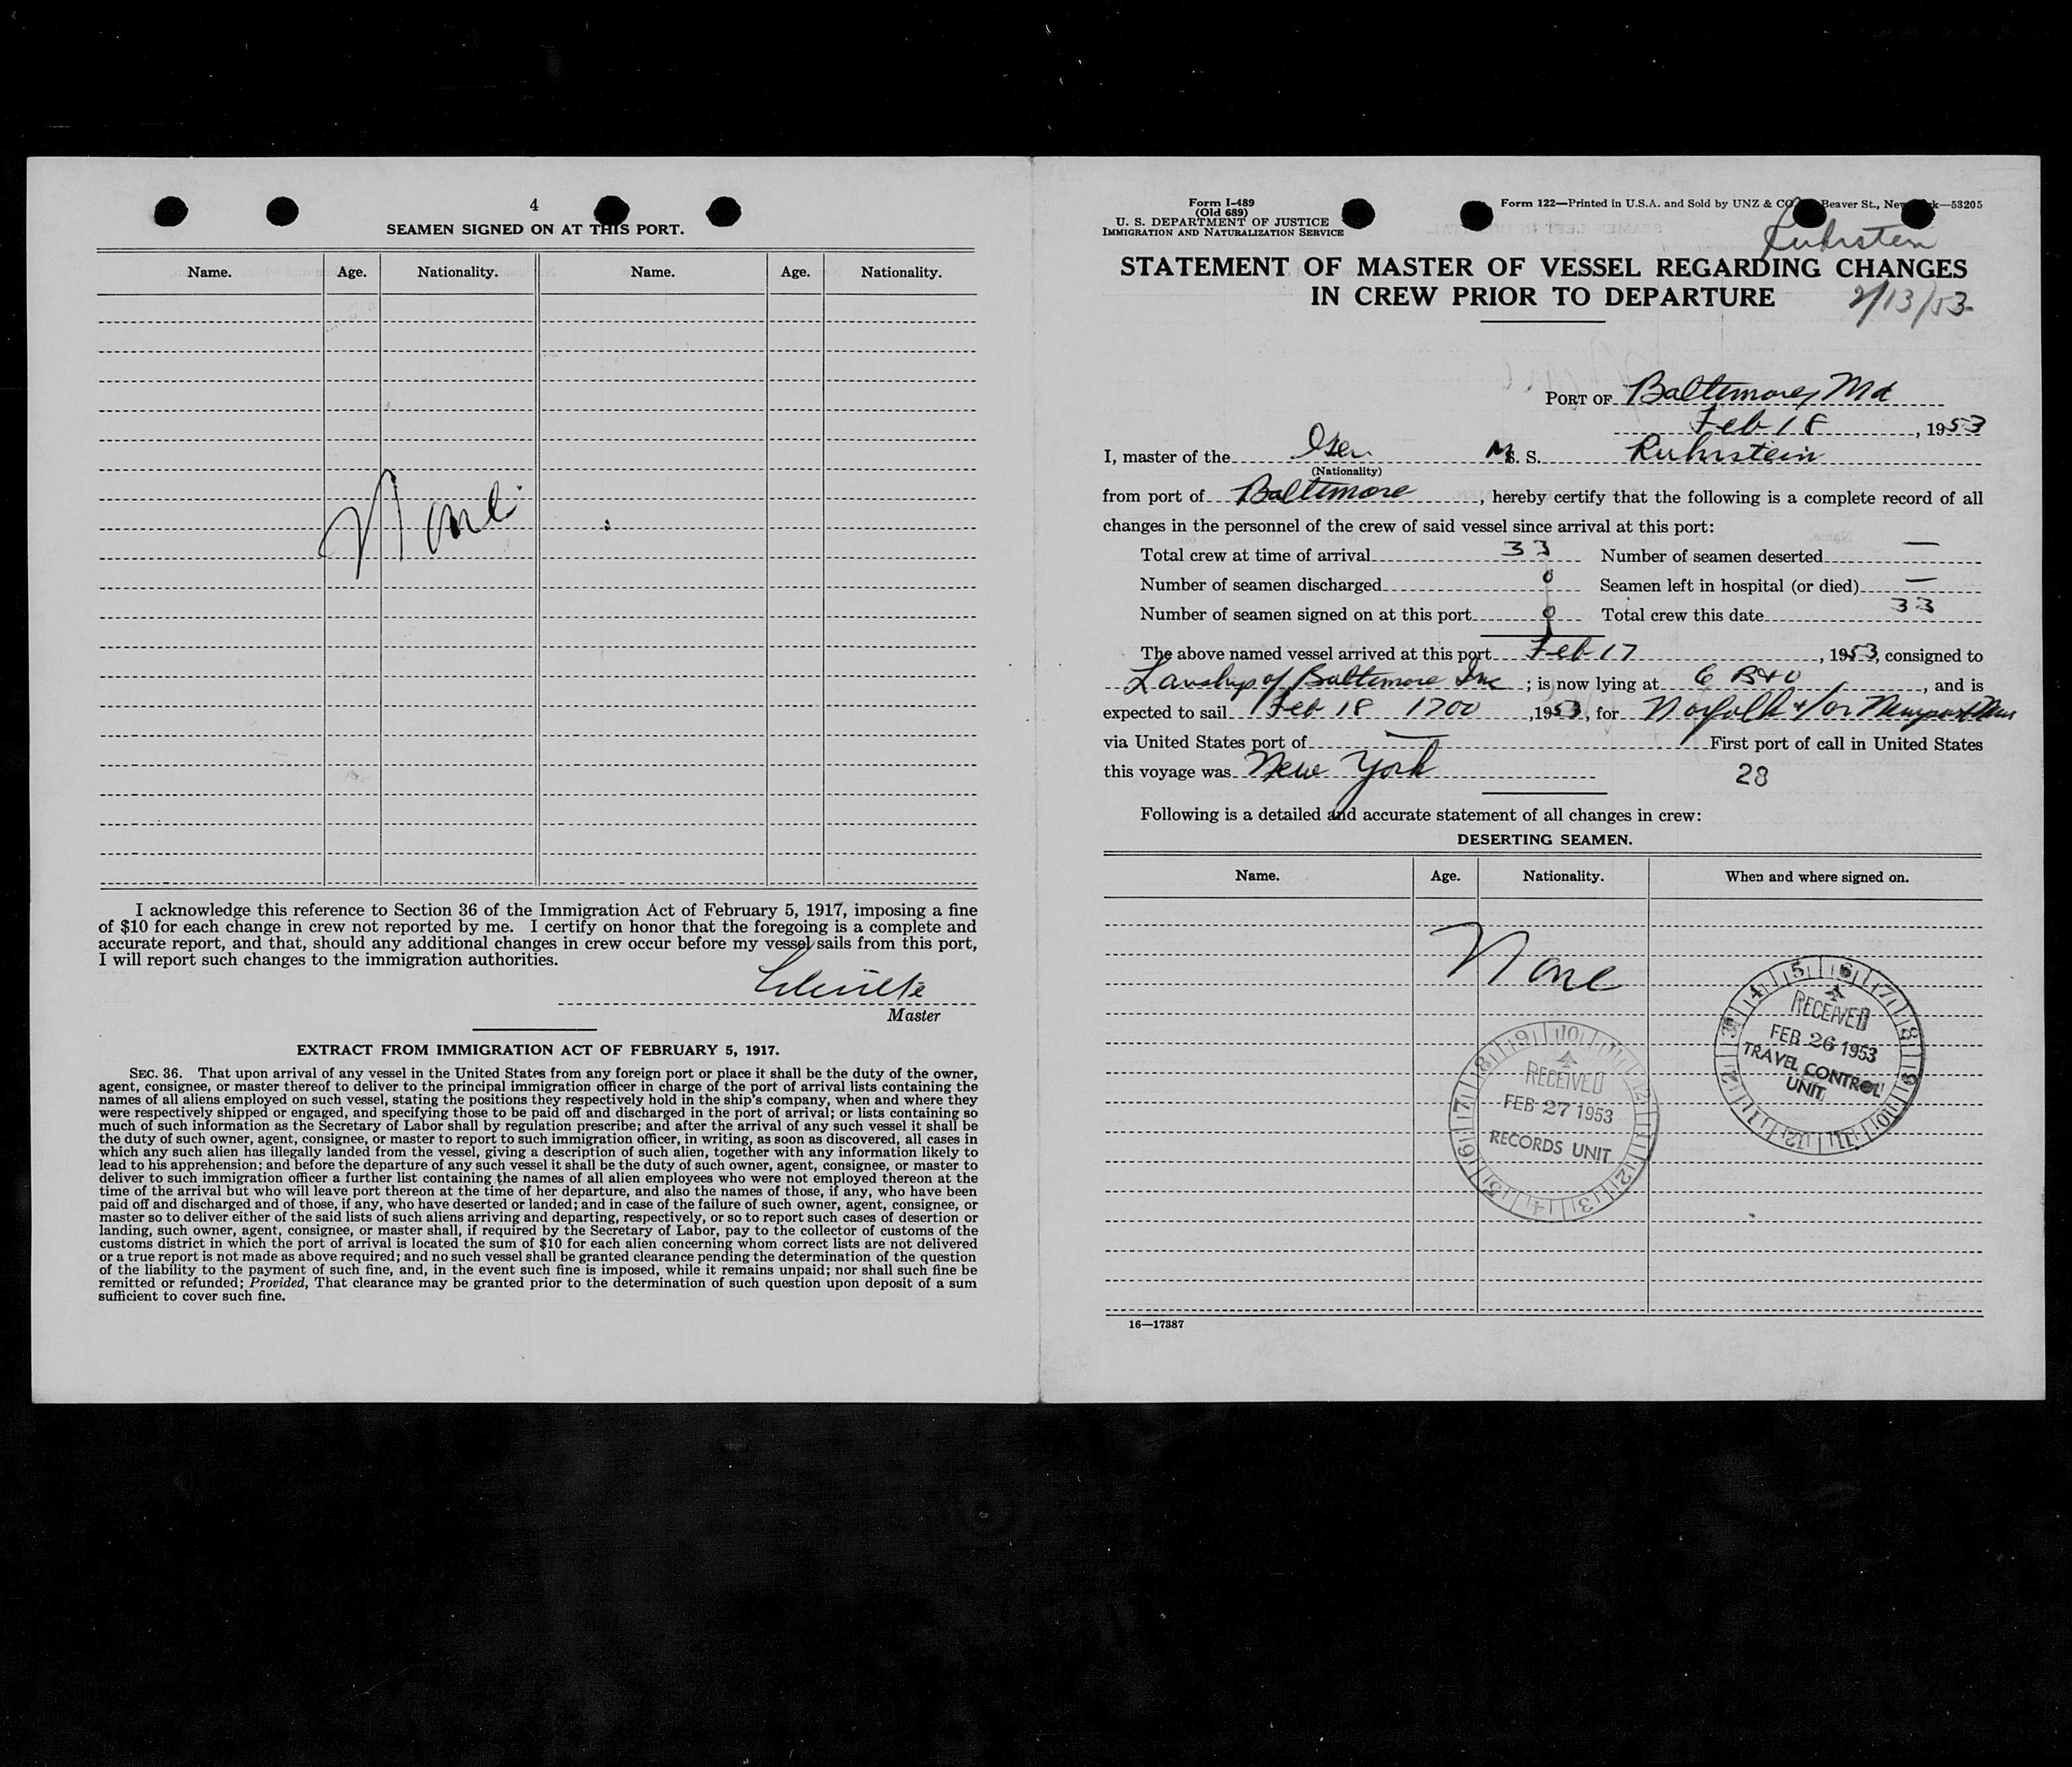 4
SEAMEN SIGNED ON AT THIS PORT.
Name. Age. Nationality. Name. Age. Nationality.
None
I acknowledge this reference to Section 36 of the Immigration Act of February 5, 1917, imposing a fine
of $10 for each change in crew not reported by me. I certify on honor that the foregoing is a complete and
accurate report, and that, should any additional changes in crew occur before my vessel sails from this port,
I will report such changes to the immigration authorities.
Master
EXTRACT FROM IMMIGRATION ACT OF FEBRUARY 5, 1917.
SEC. 36. That upon arrival of any vessel in the United States from any foreign port or place it shall be the duty of the owner,
agent, consignee, or master thereof to deliver to the principal immigration officer in charge of the port of arrival lists containing the
names of all aliens employed on such vessel, stating the positions they respectively hold in the ship's company, when and where they
were respectively shipped or engaged, and specifying those to be paid off and discharged in the port of arrival; or lists containing so
much of such information as the Secretary of Labor shall by regulation prescribe; and after the arrival of any such vessel it shall be
the duty of such owner, agent, consignee, or master to report to such immigration officer, in writing, as soon as discovered, all cases in
which any such alien has illegally landed from the vessel, giving a description of such alien, together with any information likely to
lead to his apprehension; and before the departure of any such vessel it shall be the duty of such owner, agent, consignee, or master to
deliver to such immigration officer a further list containing the names of all alien employees who were not employed thereon at the
time of the arrival but who will leave port thereon at the time of her departure, and also the names of those, if any, who have been
paid off and discharged and of those, if any, who have deserted or landed; and in case of the failure of such owner, agent, consignee, or
master so to deliver either of the said lists of such aliens arriving and departing, respectively, or so to report such cases of desertion or
landing, such owner, agent, consignee, or master shall, if required by the Secretary of Labor, pay to the collector of customs of the
customs district in which the port of arrival is located the sum of $10 for each alien concerning whom correct lists are not delivered
or a true report is not made as above required; and no such vessel shall be granted clearance pending the determination of the question
of the liability to the payment of such fine, and, in the event such fine is imposed, while it remains unpaid; nor shall such fine be
remitted or refunded; Provided, That clearance may be granted prior to the determination of such question upon deposit of a sum
sufficient to cover such fine.
Form I-489
(Old 689)
U. S. DEPARTMENT OF JUSTICE
IMMIGRATION AND NATURALIZATION SERVICE
Form 122—Printed in U.S.A. and Sold by UNZ & CO Beaver St., New k—53205
Ruhrstein
STATEMENT OF MASTER OF VESSEL REGARDING CHANGES
IN CREW PRIOR TO DEPARTURE
2/13/53
PORT OF Baltimore, Md
Feb 18, 1953
I, master of the Ger M. S. Ruhrstein
(Nationality)
from port of Baltimore, hereby certify that the following is a complete record of all
changes in the personnel of the crew of said vessel since arrival at this port:
Total crew at time of arrival 33 Number of seamen deserted —
Number of seamen discharged 0 Seamen left in hospital (or died) —
Number of seamen signed on at this port 0 Total crew this date 33
The above named vessel arrived at this port Feb 17, 1953, consigned to
of Baltimore Inc; is now lying at 6 B+O, and is
expected to sail Feb 18 1700, 1953, for Norfolk +/or Newport News
via United States port of — First port of call in United States
this voyage was New York
28
Following is a detailed and accurate statement of all changes in crew:
DESERTING SEAMEN.
Name. Age. Nationality. When and where signed on.
None
RECEIVED
FEB 26 1953
TRAVEL CONTROL
UNIT
RECEIVED
FEB 27 1953
RECORDS UNIT
16—17387